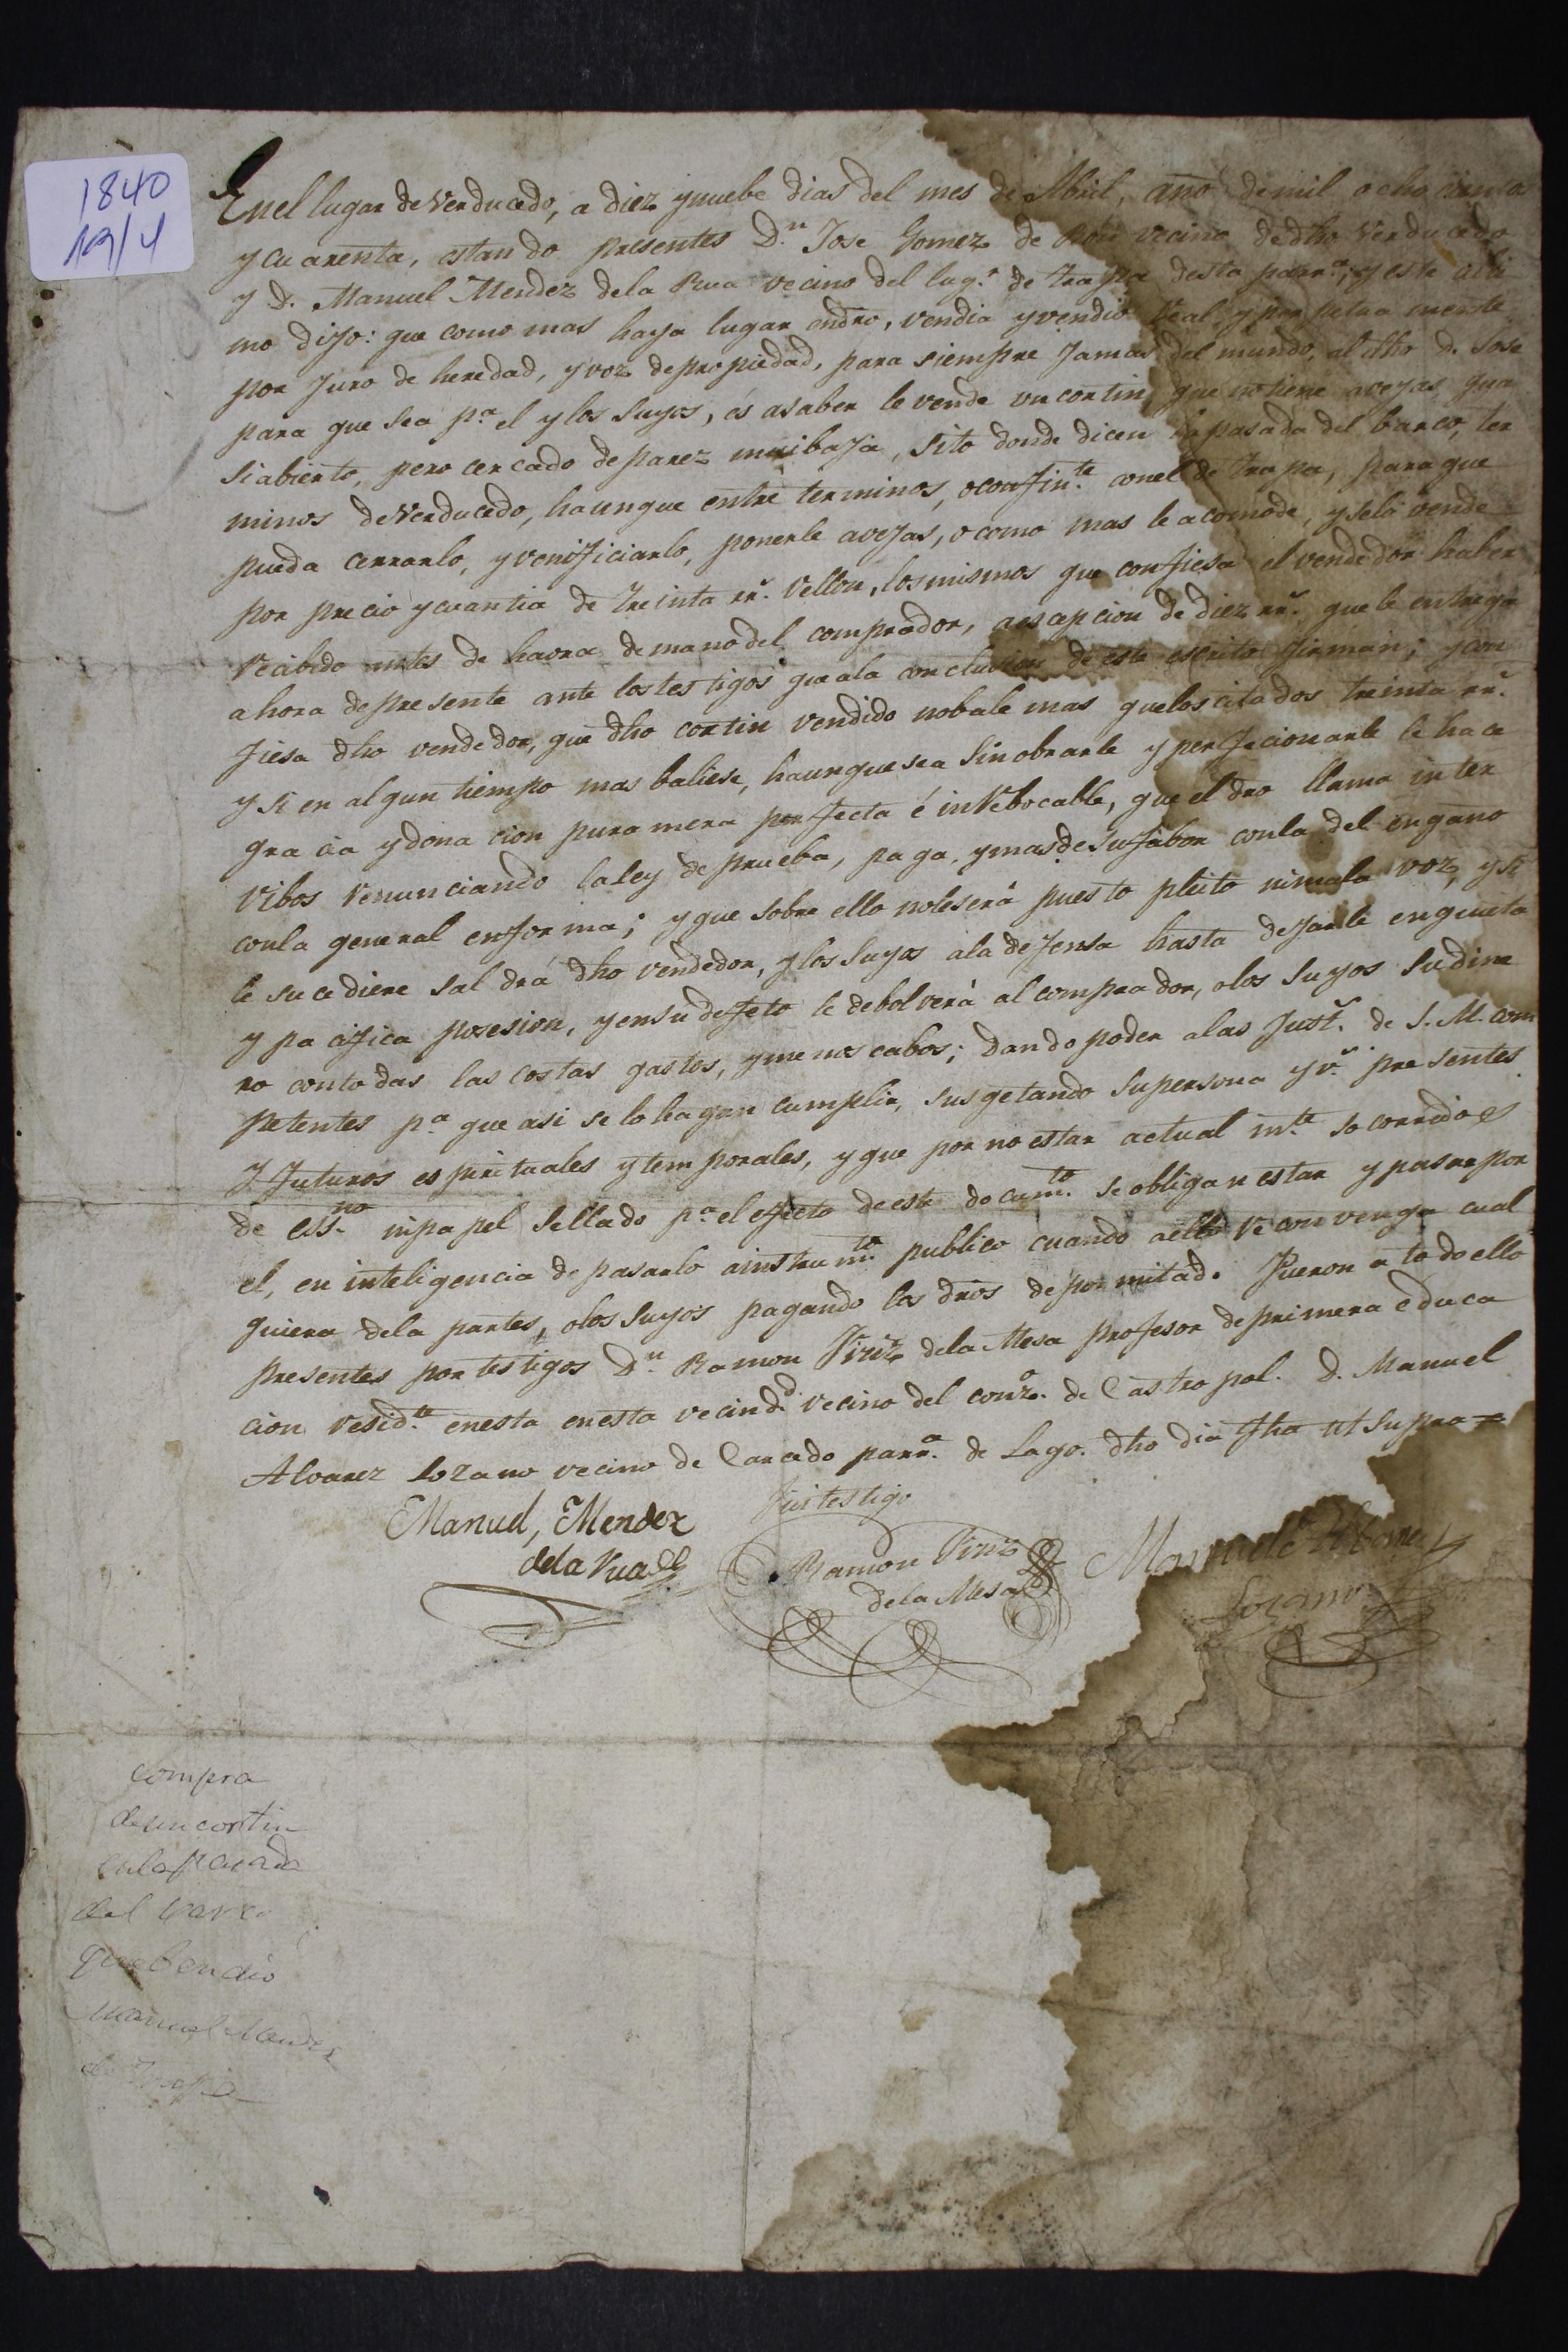 1840
19/4
En el lugar de Verducedo, a diez y nuebe dias del mes de Abril, año de mil ocho cientos
y cuarenta, estando presentes D.n Jose Gomez de Ron vecino de dho Verducedo
y D. Manuel Mendez dela Rua vecino del lug.r de trapa desta parr.a; y este ulti
mo dijo: que como mas haya lugar endro, vendia y vendio Real y perpetua mente
por Juro de heredad, y voz de propiedad, para siempre Jamas del mundo, al dho D. Jose
para que sea p.a el y los Suyos, és asaber le vende un cortin que no tiene avejas, qua
si abierto, pero cercado de parez mui baja, sito donde dicen la pasada del barco, ter
minos de Verducedo, haunque entre terminos, o confin.te con el de Trapa, para que
pueda cerrarlo, y venificiarlo, ponerle avejas, o como mas le acomode, y selo vende
por precio y cuantia de treinta rr.s vellon, los mismos que confiesa el vendedor haber
Recibido antes de haora de mano del comprador, a escepcion de diez rr.s que le entrega
ahora de presente ante los testigos que ala conclusion de este escrito firman; y con
fiesa dho vendedor, que dho cortin vendido no bale mas que los citados treinta rr.s
y si en algun tiempo mas baliese, haunque sea sin obrarle y perfecionarle le hace
gracia y dona cion pura mera perfecta é inRebocable, que el dro llama inter
vibos Renunciando la ley de prueba, paga, y mas de su fabor con la del engaño
con la general en forma; y que sobre ello no le será puesto pleito ni mala voz, y si
le sucediere saldrá dho vendedor, y los Suyos ala defensa hasta dejarle en quieta
y pacifica posesion, y en su defeto le debolverá al comprador, o los suyos su dine
ro con todas las costas gastos, y menos cabos; Dando poder a las Just.s de S. M. com
petentes p.a que asi se lo hagan cumplir, susgetando su persona y v.s presentes
y futuros espirituales y temporales, y que por no estar actual m.te socorridos
de ess.no ni papel Sellado p.a el efecto de este docum.to se obligan estar y pasar por
el, en inteligencia de pasarlo a instrum.to publico cuando a ello Re convenga cual
quiera dela partes, o los Suyos pagando los dros de por mitad. Fueron a todo ello
presentes por testigos D.n Ramon Viriz dela Mesa profesor de primera educa
cion resid.te en esta en esta vecind.d vecino del conz.o de Castropol. D. Manuel
Alvarez Lozano vecino de Carcedo parr.a de Lago. dho dia fha ut Supra =
Manuel, Mendez
dela Rua
Fui testigo
Ramon Viriz
dela Mesa
Manuel Albarez
Lozano
compra
de un cortin
en la pasada
del varco
que bendió
Manuel Mendez
de Trapa